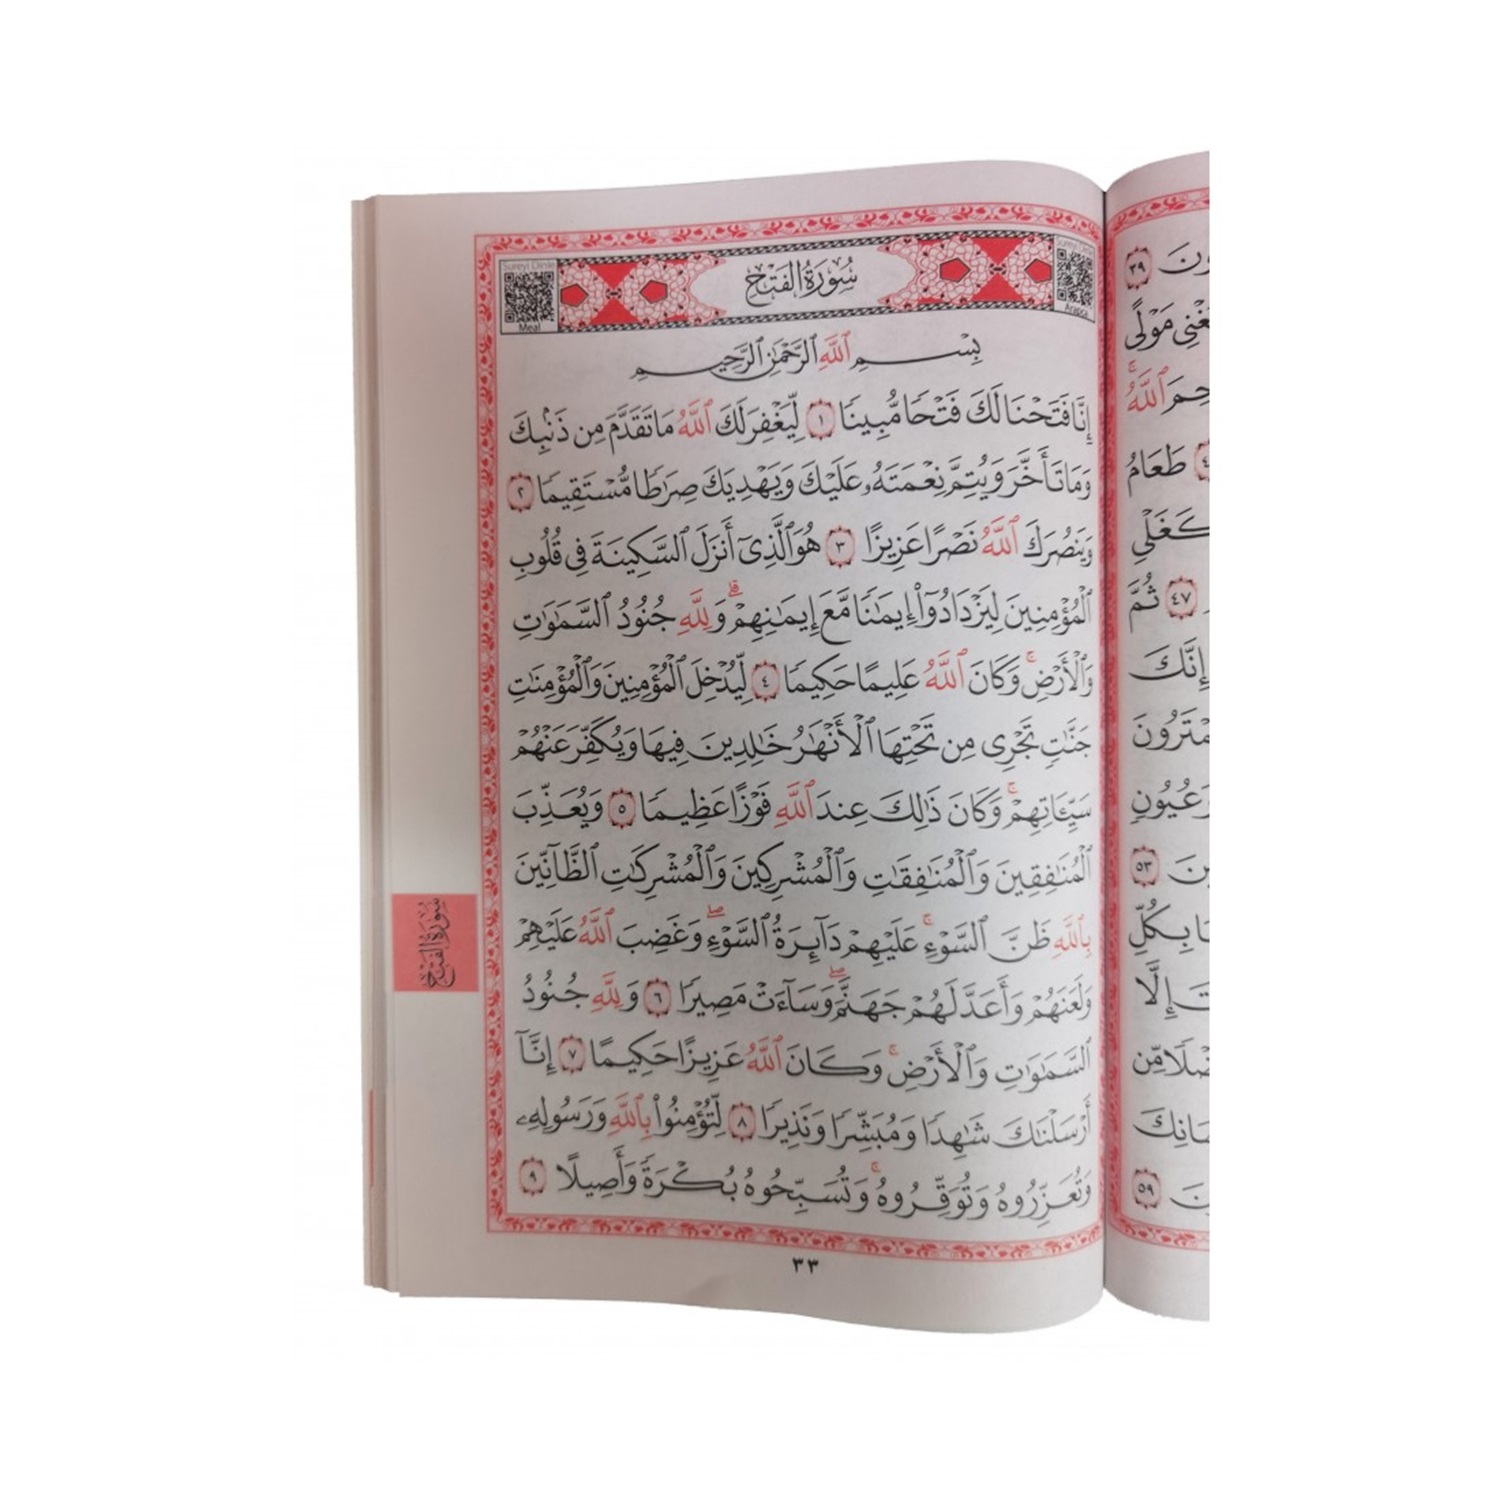 Sureyi Dinle
Meal
سُورَةُ الفَتْحِ
Sureyi Dinle
Arapça
بِسْمِ ٱللَّهِ ٱلرَّحْمَٰنِ ٱلرَّحِيمِ
إِنَّا فَتَحْنَا لَكَ فَتْحًا مُّبِينًا ١ لِّيَغْفِرَ لَكَ ٱللَّهُ مَا تَقَدَّمَ مِن ذَنۢبِكَ
وَمَا تَأَخَّرَ وَيُتِمَّ نِعْمَتَهُۥ عَلَيْكَ وَيَهْدِيَكَ صِرَٰطًا مُّسْتَقِيمًا ٢
وَيَنصُرَكَ ٱللَّهُ نَصْرًا عَزِيزًا ٣ هُوَ ٱلَّذِىٓ أَنزَلَ ٱلسَّكِينَةَ فِى قُلُوبِ
ٱلْمُؤْمِنِينَ لِيَزْدَادُوٓا۟ إِيمَٰنًا مَّعَ إِيمَٰنِهِمْ ۗ وَلِلَّهِ جُنُودُ ٱلسَّمَٰوَٰتِ
وَٱلْأَرْضِ ۚ وَكَانَ ٱللَّهُ عَلِيمًا حَكِيمًا ٤ لِّيُدْخِلَ ٱلْمُؤْمِنِينَ وَٱلْمُؤْمِنَٰتِ
جَنَّٰتٍ تَجْرِى مِن تَحْتِهَا ٱلْأَنْهَٰرُ خَٰلِدِينَ فِيهَا وَيُكَفِّرَ عَنْهُمْ
سَيِّـَٔاتِهِمْ ۚ وَكَانَ ذَٰلِكَ عِندَ ٱللَّهِ فَوْزًا عَظِيمًا ٥ وَيُعَذِّبَ
ٱلْمُنَٰفِقِينَ وَٱلْمُنَٰفِقَٰتِ وَٱلْمُشْرِكِينَ وَٱلْمُشْرِكَٰتِ ٱلظَّآنِّينَ
بِٱللَّهِ ظَنَّ ٱلسَّوْءِ ۚ عَلَيْهِمْ دَآئِرَةُ ٱلسَّوْءِ ۖ وَغَضِبَ ٱللَّهُ عَلَيْهِمْ
وَلَعَنَهُمْ وَأَعَدَّ لَهُمْ جَهَنَّمَ ۖ وَسَآءَتْ مَصِيرًا ٦ وَلِلَّهِ جُنُودُ
ٱلسَّمَٰوَٰتِ وَٱلْأَرْضِ ۚ وَكَانَ ٱللَّهُ عَزِيزًا حَكِيمًا ٧ إِنَّآ
أَرْسَلْنَٰكَ شَٰهِدًا وَمُبَشِّرًا وَنَذِيرًا ٨ لِّتُؤْمِنُوا۟ بِٱللَّهِ وَرَسُولِهِۦ
وَتُعَزِّرُوهُ وَتُوَقِّرُوهُ ۚ وَتُسَبِّحُوهُ بُكْرَةً وَأَصِيلًا ٩
٣٣
سُورَةُ الفَتْحِ
٣٩
مَوْلًى
ٱللَّهُ ۚ
طَعَامُ
كَغَلْىِ
٤٧ ثُمَّ
إِنَّكَ
وَعُيُونٍ
٥٣
بِكُلِّ
إِلَّا
٥٩